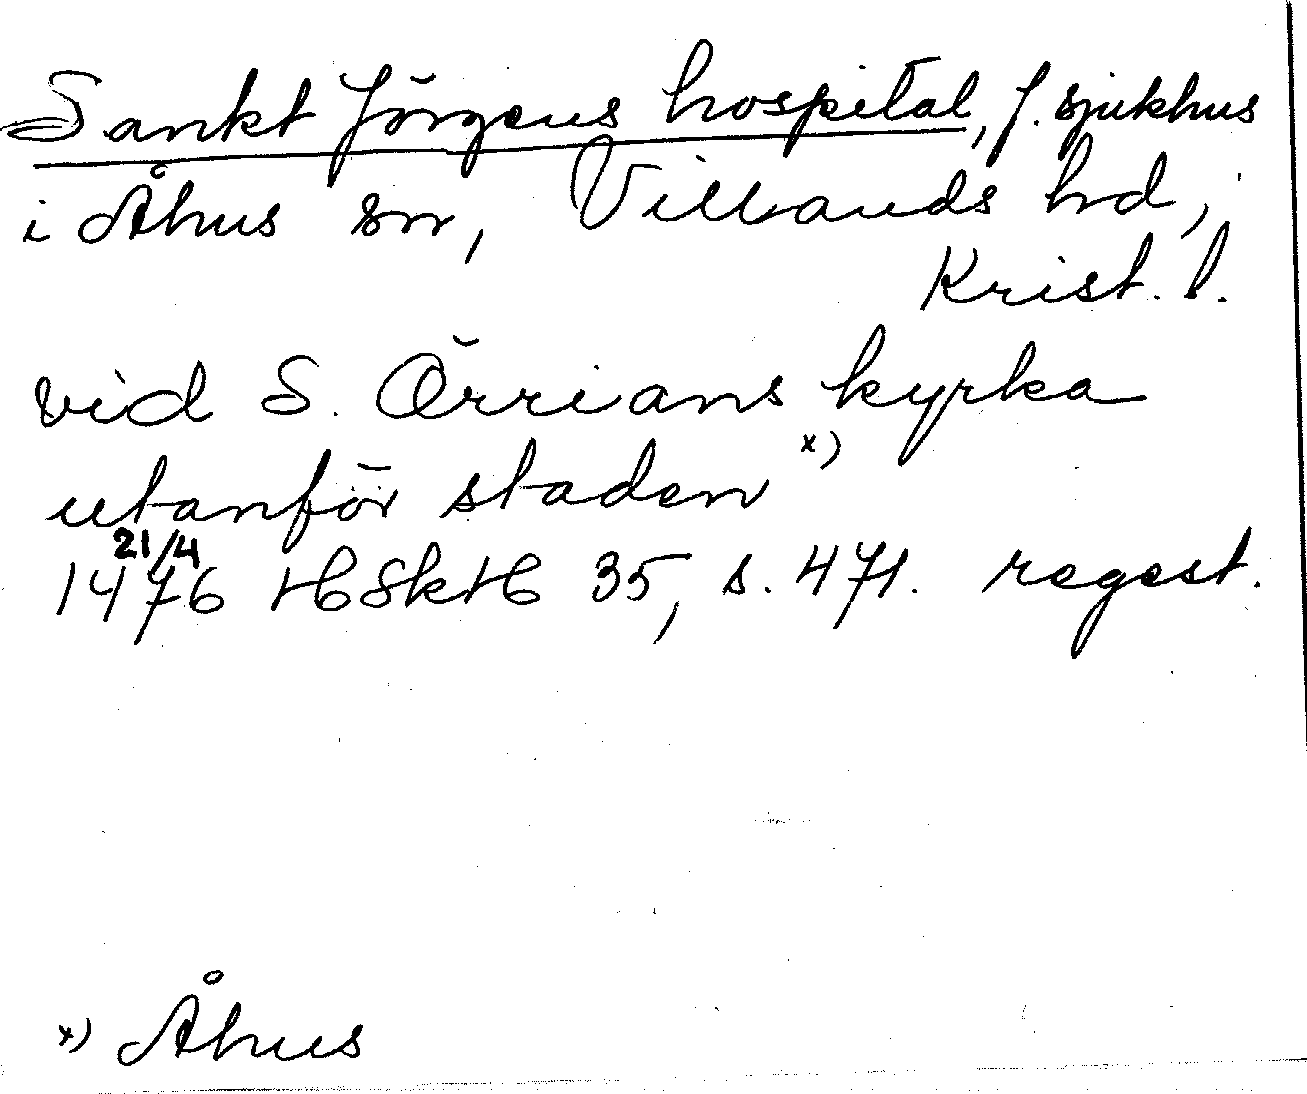 Sankt Jörgens hospital, f. sjukhus
i Åhus sn, Villands hd,
Krist. l.
vid S. Örrians kyrka
utanför staden x)
1476 21/4 HSkH 35, s. 471. regest.
x) Åhus